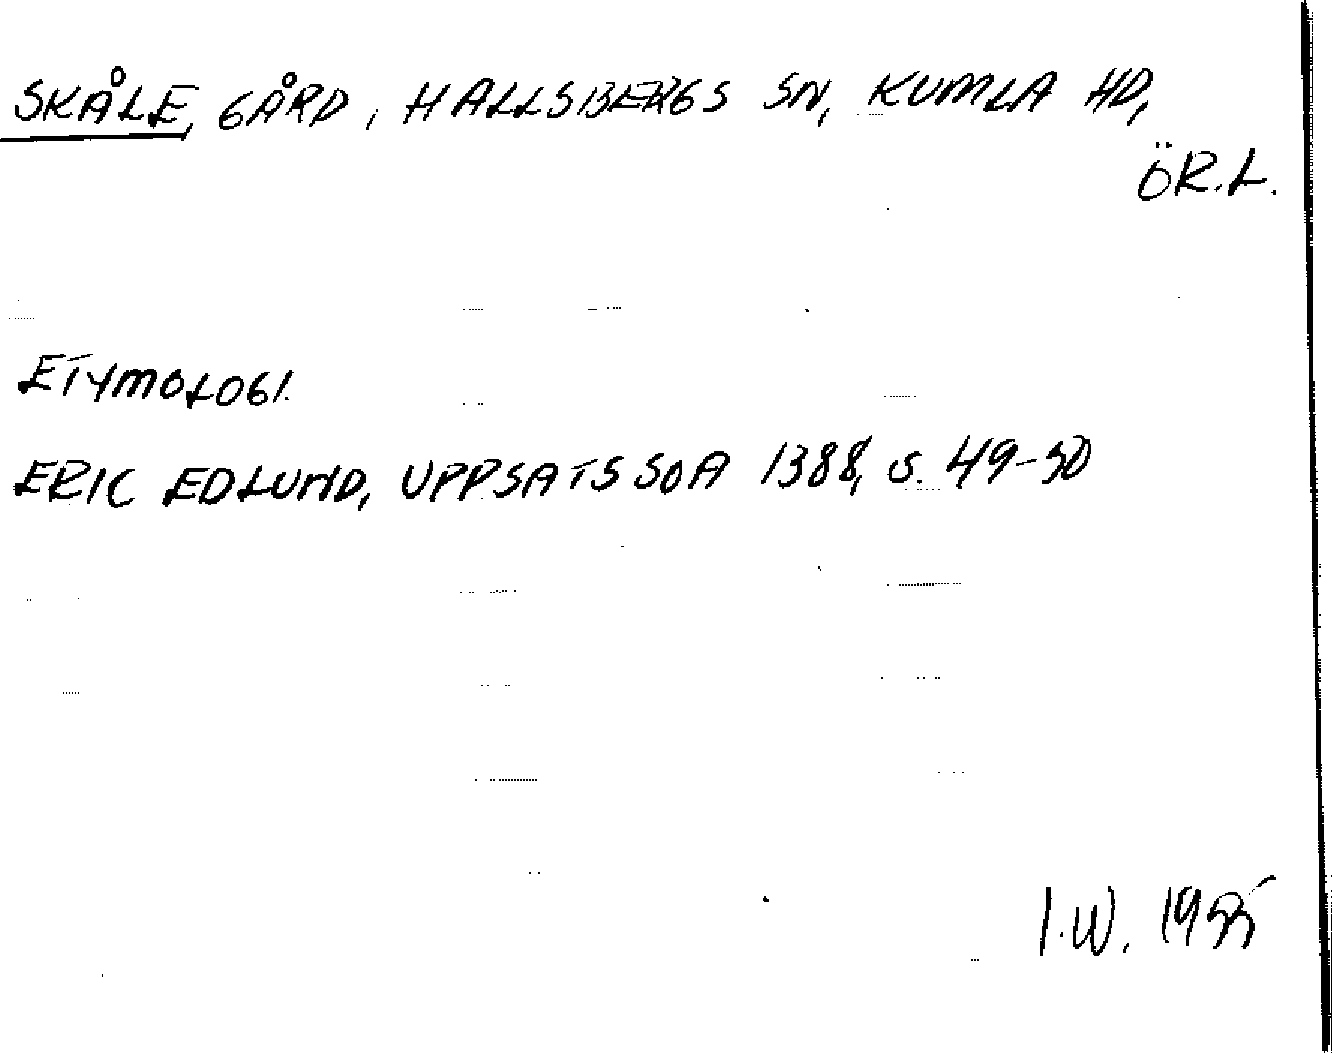 SKÅLE, GÅRD, HALLSBERGS SN, KUMLA HD,
ÖR.L.
ETYMOLOGI.
ERIC EDLUND, UPPSATS SOA 1388, S. 49-50
I.W. 1955